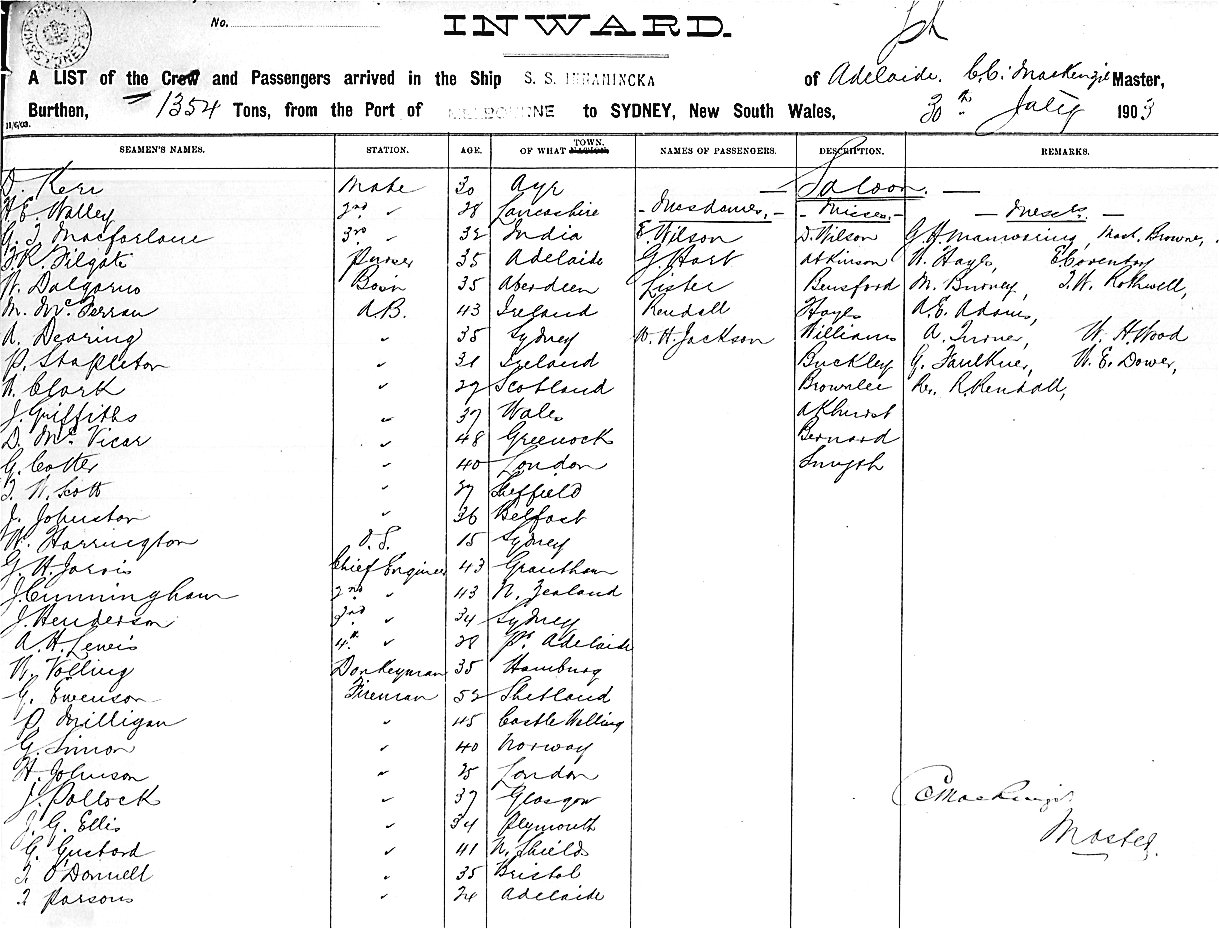 No.
INWARD.
A LIST of the Crew and Passengers arrived in the Ship S. S. INNAMINCKA of Adelaide. C.C. Mackenzie Master,
Burthen, 1354 Tons, from the Port of MELBOURNE to SYDNEY, New South Wales, 30th July 1903
11/6/03.
SEAMEN'S NAMES. STATION. AGE. OF WHAT NATION TOWN. NAMES OF PASSENGERS. DESCRIPTION. REMARKS.
D. Kerr Mate 30 Ayr — Saloon. —
H. E. Walley 2nd " 28 Lancashire - Mesdames, - - Misses, - — Messrs. —
G. J. Macfarlane 3rd " 32 India E. Wilson D. Wilson G. H. Manwaring, Mast. Browne,
F. R. Filgate Purser 35 Adelaide G. Hart Atkinson W. Hayes, E. Coventry
W. Dalgarno Bosn 35 Aberdeen Lister Bensford M. Burney, J. W. Rothwell,
M. McFerran A.B. 43 Ireland Kendall Hayes A. E. Adams,
A. Dearing " 35 Sydney W. H. Jackson Williams A. W. H. Wood
P. Stapleton " 31 Ireland Buckley G. Faulkner, W. E. Dower,
W. Clark " 29 Scotland Brownlee R. Kendall,
J. Griffiths " 37 Wales Akhurst
D. McVicar " 48 Greenock Bernard
G. Cotter " 40 London Smyth
J. W. Scott " 29 Sheffield
J. Johnston " 36 Belfast
W. Harrington O. S. 15 Sydney
G. H. Jarvis Chief Engineer 43 Grantham
J. Cunningham 2nd " 43 N. Zealand
J. Henderson 3rd " 34 Sydney
A. H. Lewis 4th " 28 Pt. Adelaide
W. Volling Donkeyman 35 Hamburg
G. Ewenson Fireman 52 Shetland
P. Milligan " 45 Castle Welling
G. Simon " 40 Norway
H. Johnson " 25 London
J. Pollock " 37 Glasgow CMackenzie
J. G. Ellis " 34 Plymouth Master.
G. Gustard " 41 N. Shields
J. O'Donnell " 35 Bristol
J. Parsons " 24 Adelaide